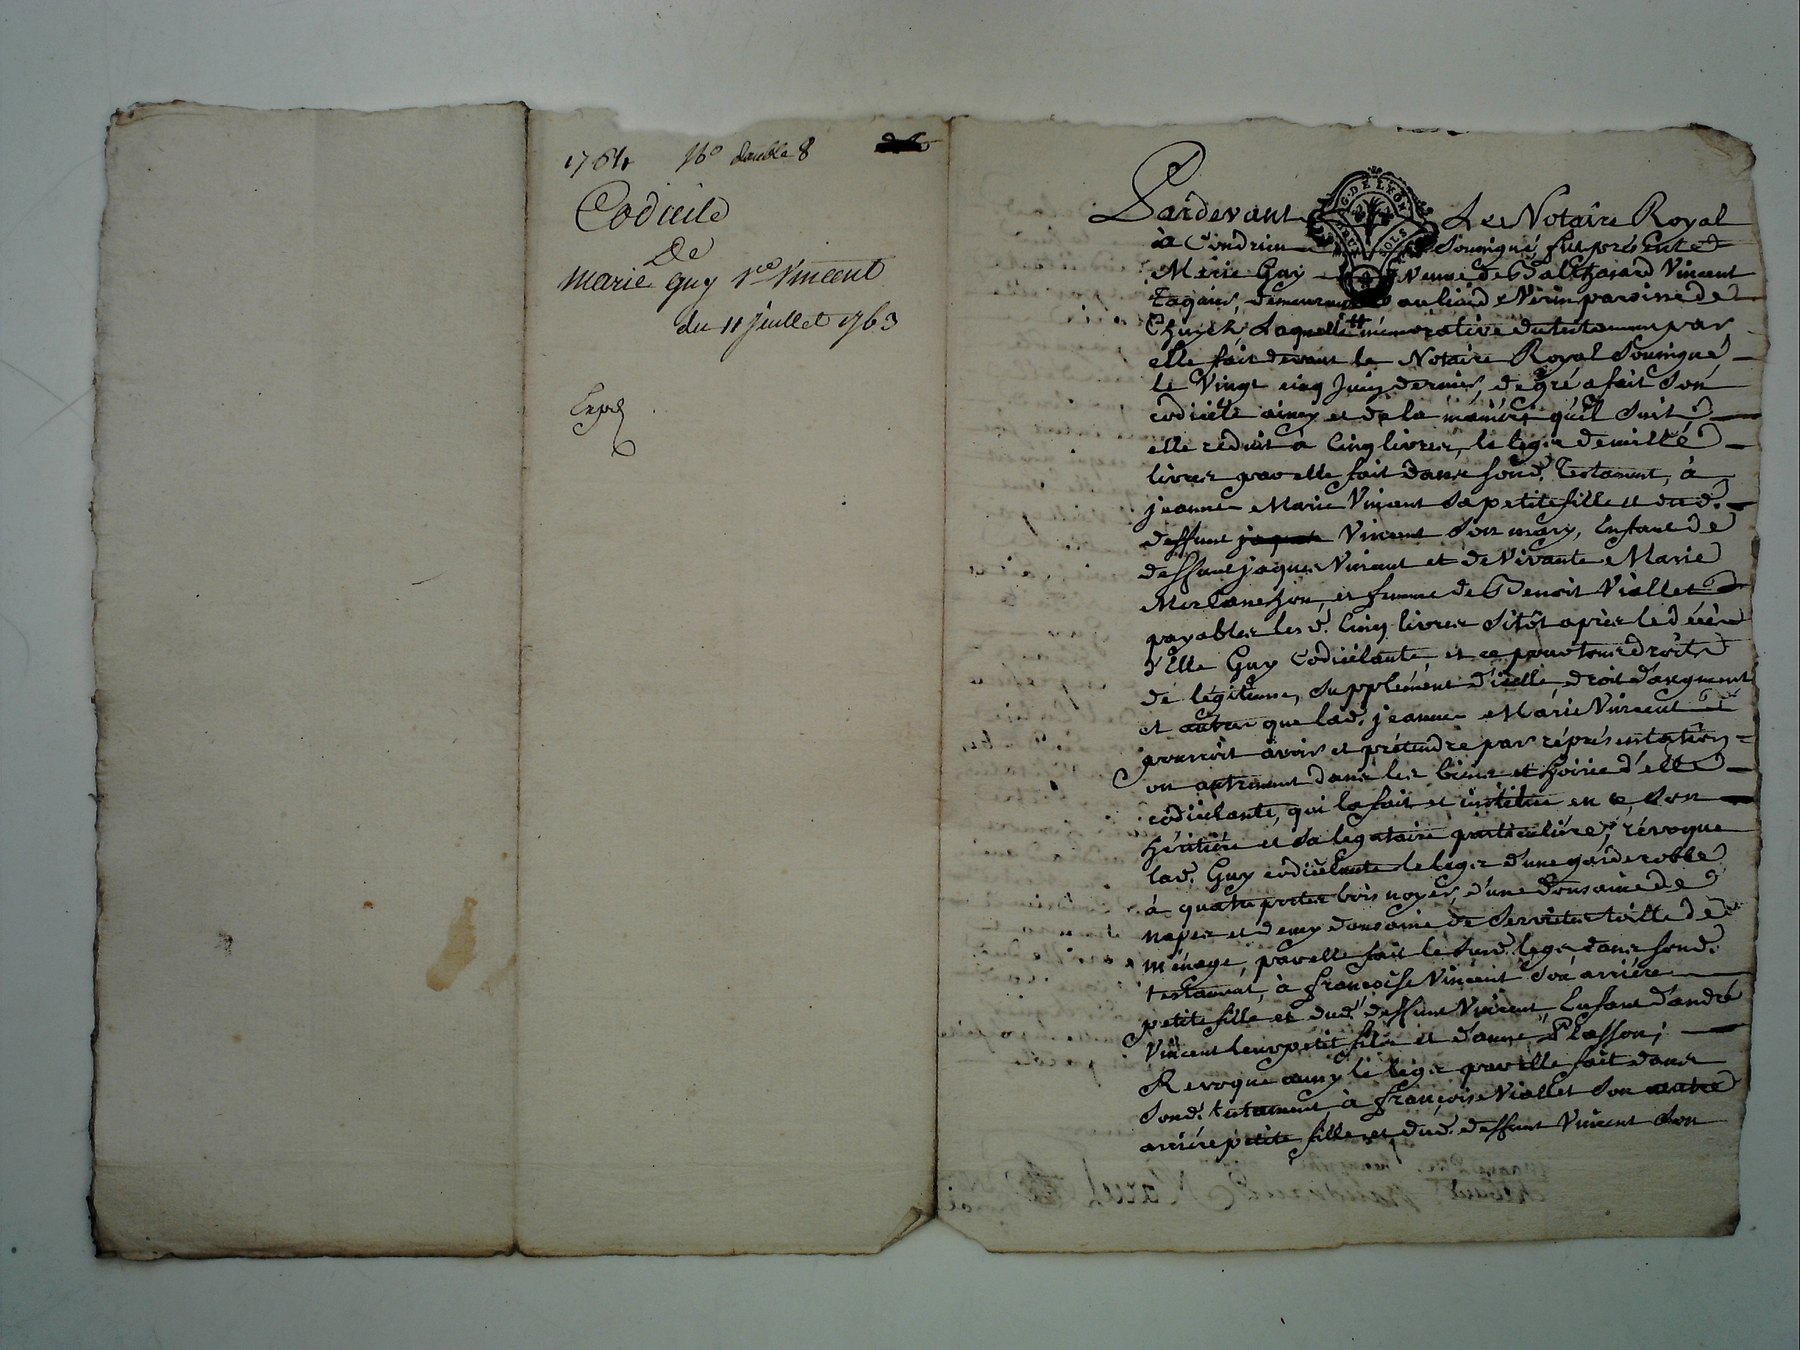 1764 No double 8
Codicile
De
marie guy vve Vincent
du 11 juillet 1763
Expé
Pardevant Le Notaire Royal
à Condrieu Soussigné fut présente
Marie Guy Veuve de Balthazard Vincent
demeurant au lieu de Vérin paroisse de
laquelle mémorative du testament par
elle fait devant le Notaire Royal Soussigné
le Vingt cinq Juin dernier, de gré a fait Son
codicille ainsy et de la manière qu'il Suit
elle réduit a Cinq livres, le legs de mille
livres par elle fait dans sond. Testament, à
jeanne Marie Vincent Sa petite fille et dud.
deffunt Vincent Son mary, Enfant de
deffunt jaques Vincent et de Vivante Marie
et femme de Benoit Viallet
payables lesd. Cinq livres Sitôt après le décès
d'Elle Guy Codicilante, et ce pour tous droits
de légitime, Supplément d'icelle, droit d'augment
et autres que lad. jeanne Marie Vincent
pourroit avoir et prétendre par représentation
ou autrement dans les biens et hoirie d'elle
codicilante, qui la fait et institue en ce, Son
héritière et Sa legataire particulière; révoque
lad. Guy codicilante le legs d'une garderobbe
à quatre portes bois noyer, d'une Dousaine de
napes et demy dousaine de Serviettes toille de
ménage, par elle fait le Susd. legs dans sond.
testament, à françoise Vincent Son arrière
petite fille et dud. deffunt Vincent, Enfant d'andré
Vincent leur petit fils et d'anne Plasson;
Revoque aussy le legs par elle fait dans
Sond. testament à françoise Viallet Son
arrière petite fille et dud. deffunt Vincent Son
G. DE LYON
SOLS